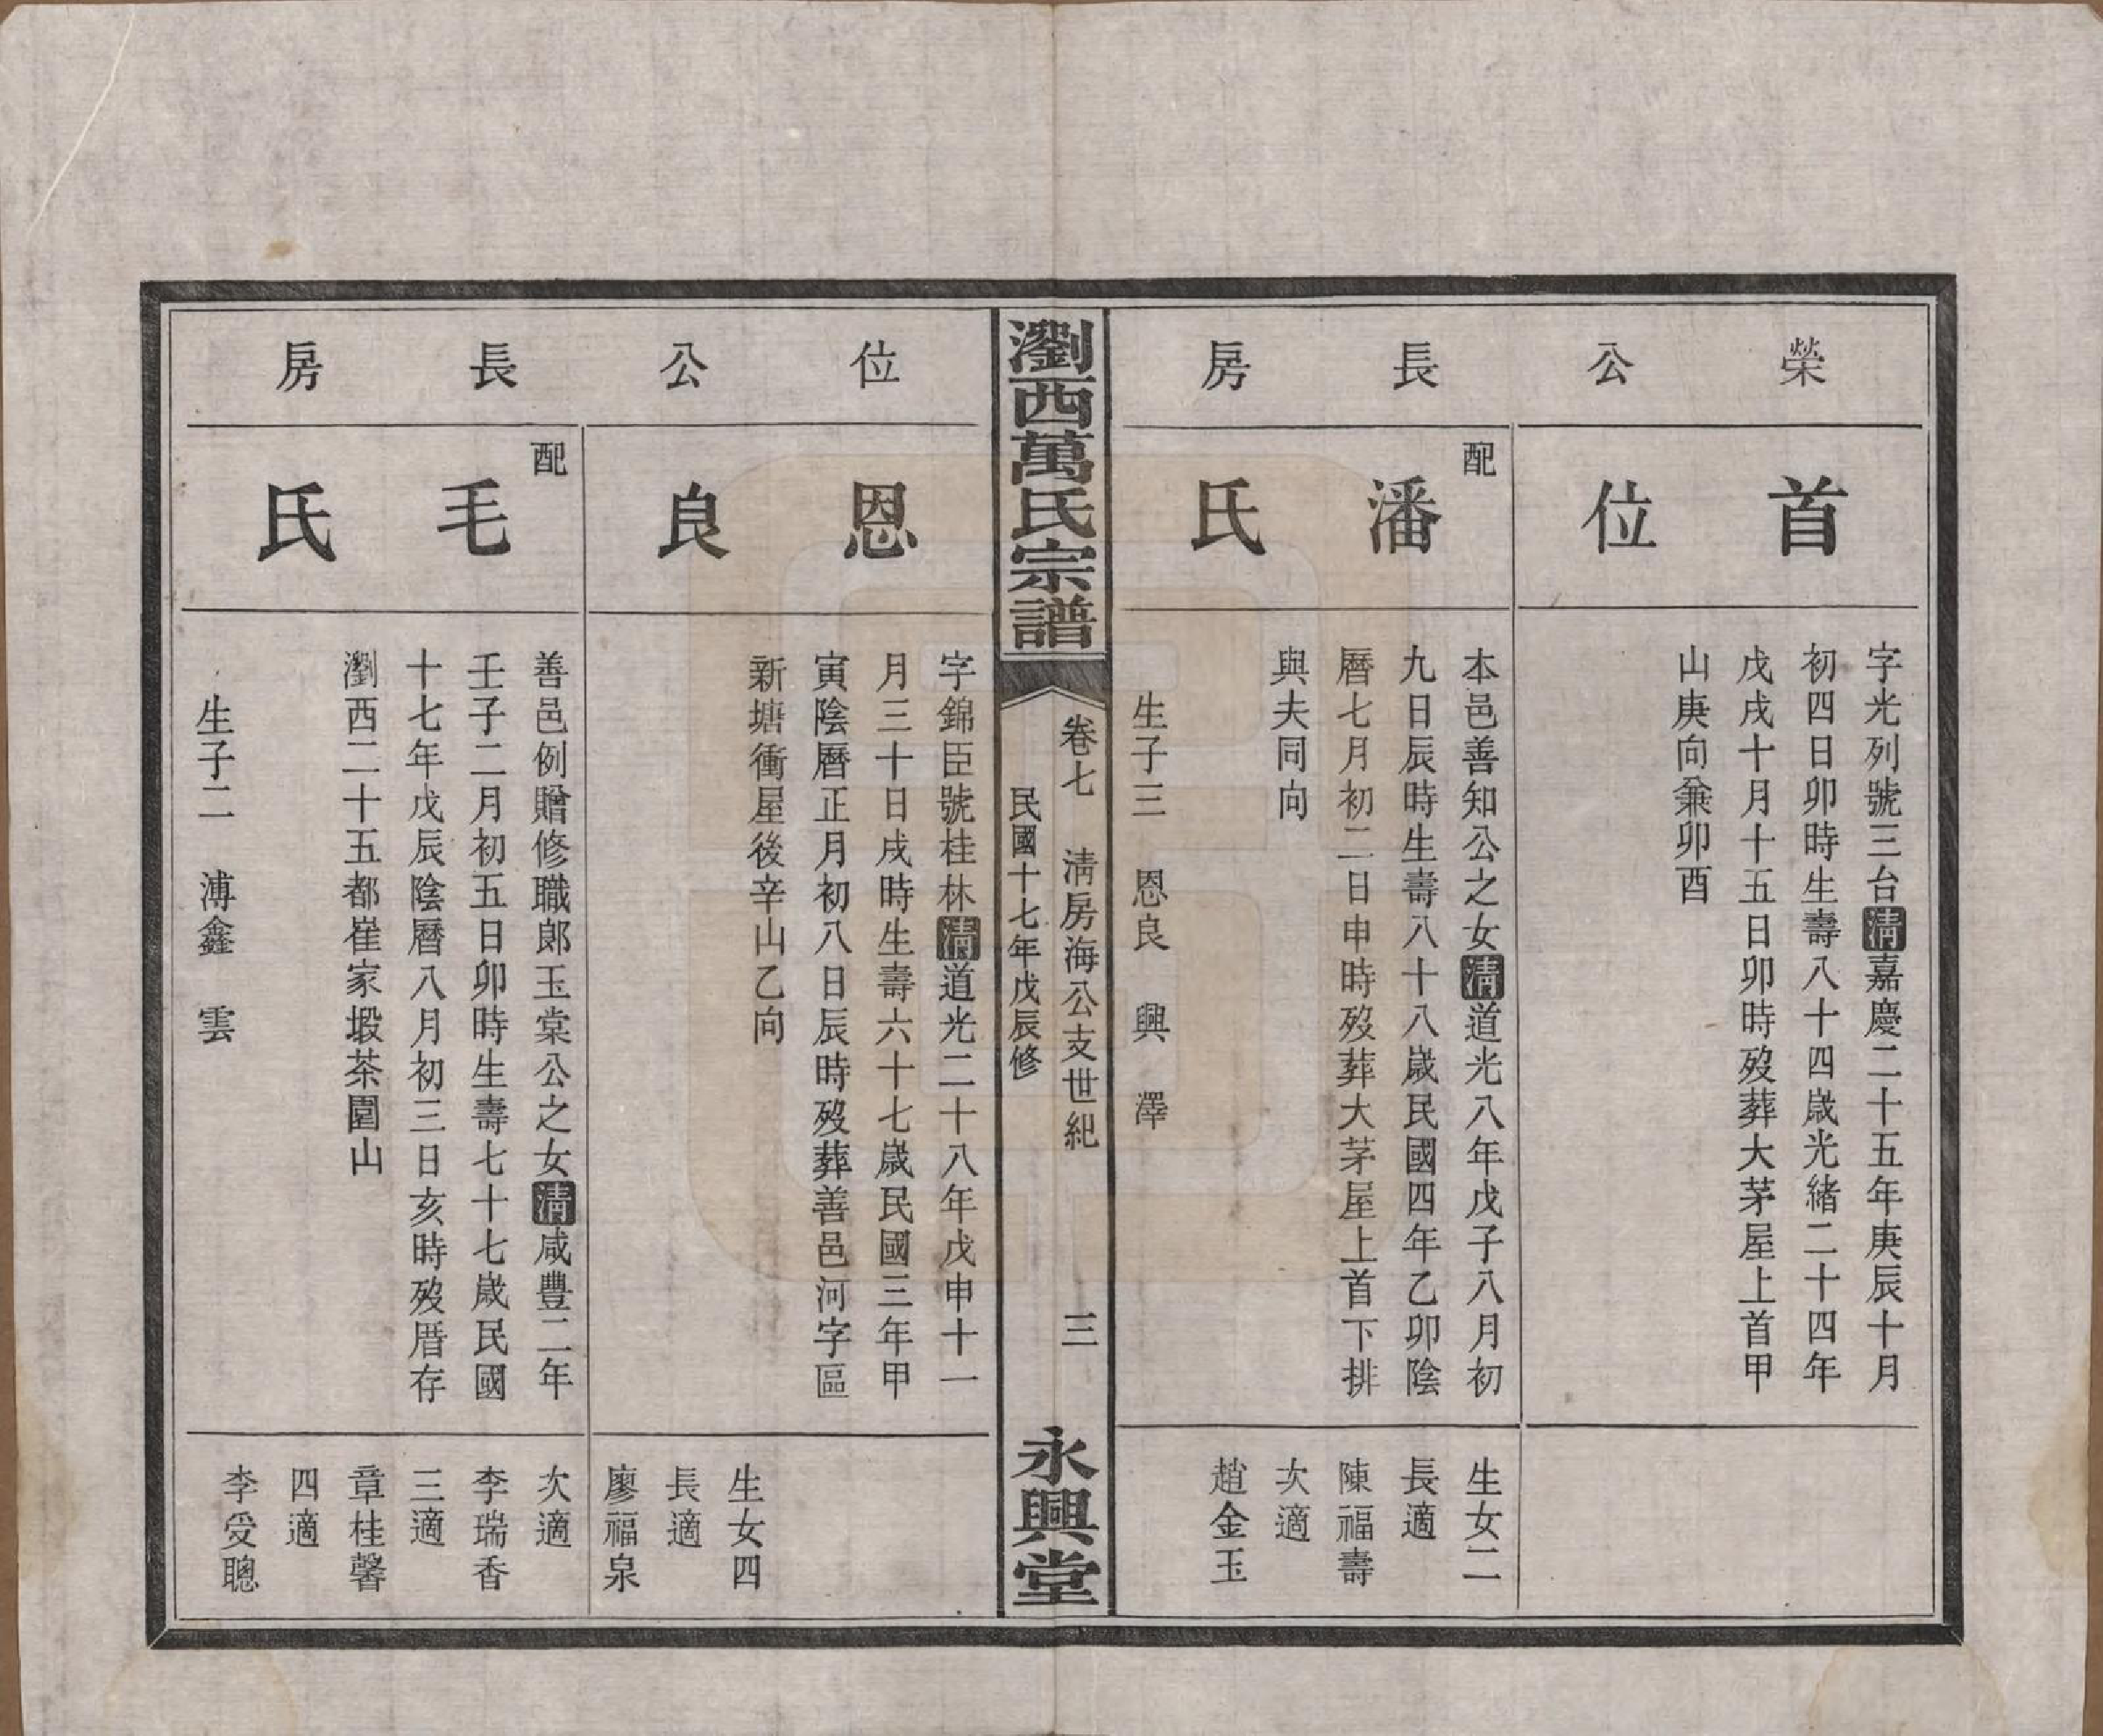 榮公長房
首位
字光列號三台清嘉慶二十五年庚辰十月
初四日卯時生壽八十四歲光緒二十四年
戊戌十月十五日卯時歿葬大茅屋上首甲
山庚向兼卯酉
配
潘氏
本邑善知公之女清道光八年戊子八月初
九日辰時生壽八十八歲民國四年乙卯陰
曆七月初二日申時歿葬大茅屋上首下排
與夫同向
生子三 恩良 興 澤
生女二
長適
陳福壽
次適
趙金玉
瀏西萬氏宗譜
卷七 清房海公支世紀 三
民國十七年戊辰修
永興堂
位公長房
恩良
字錦臣號桂林清道光二十八年戊申十一
月三十日戌時生壽六十七歲民國三年甲
寅陰曆正月初八日辰時歿葬善邑河字區
新塘衝屋後辛山乙向
生女四
長適
廖福泉
配
毛氏
善邑例贈修職郎玉棠公之女清咸豐二年
壬子二月初五日卯時生壽七十七歲民國
十七年戊辰陰曆八月初三日亥時歿厝存
瀏西二十五都崔家塅茶園山
生子二 溥鑫 雲
次適
李瑞香
三適
章桂馨
四適
李受聰